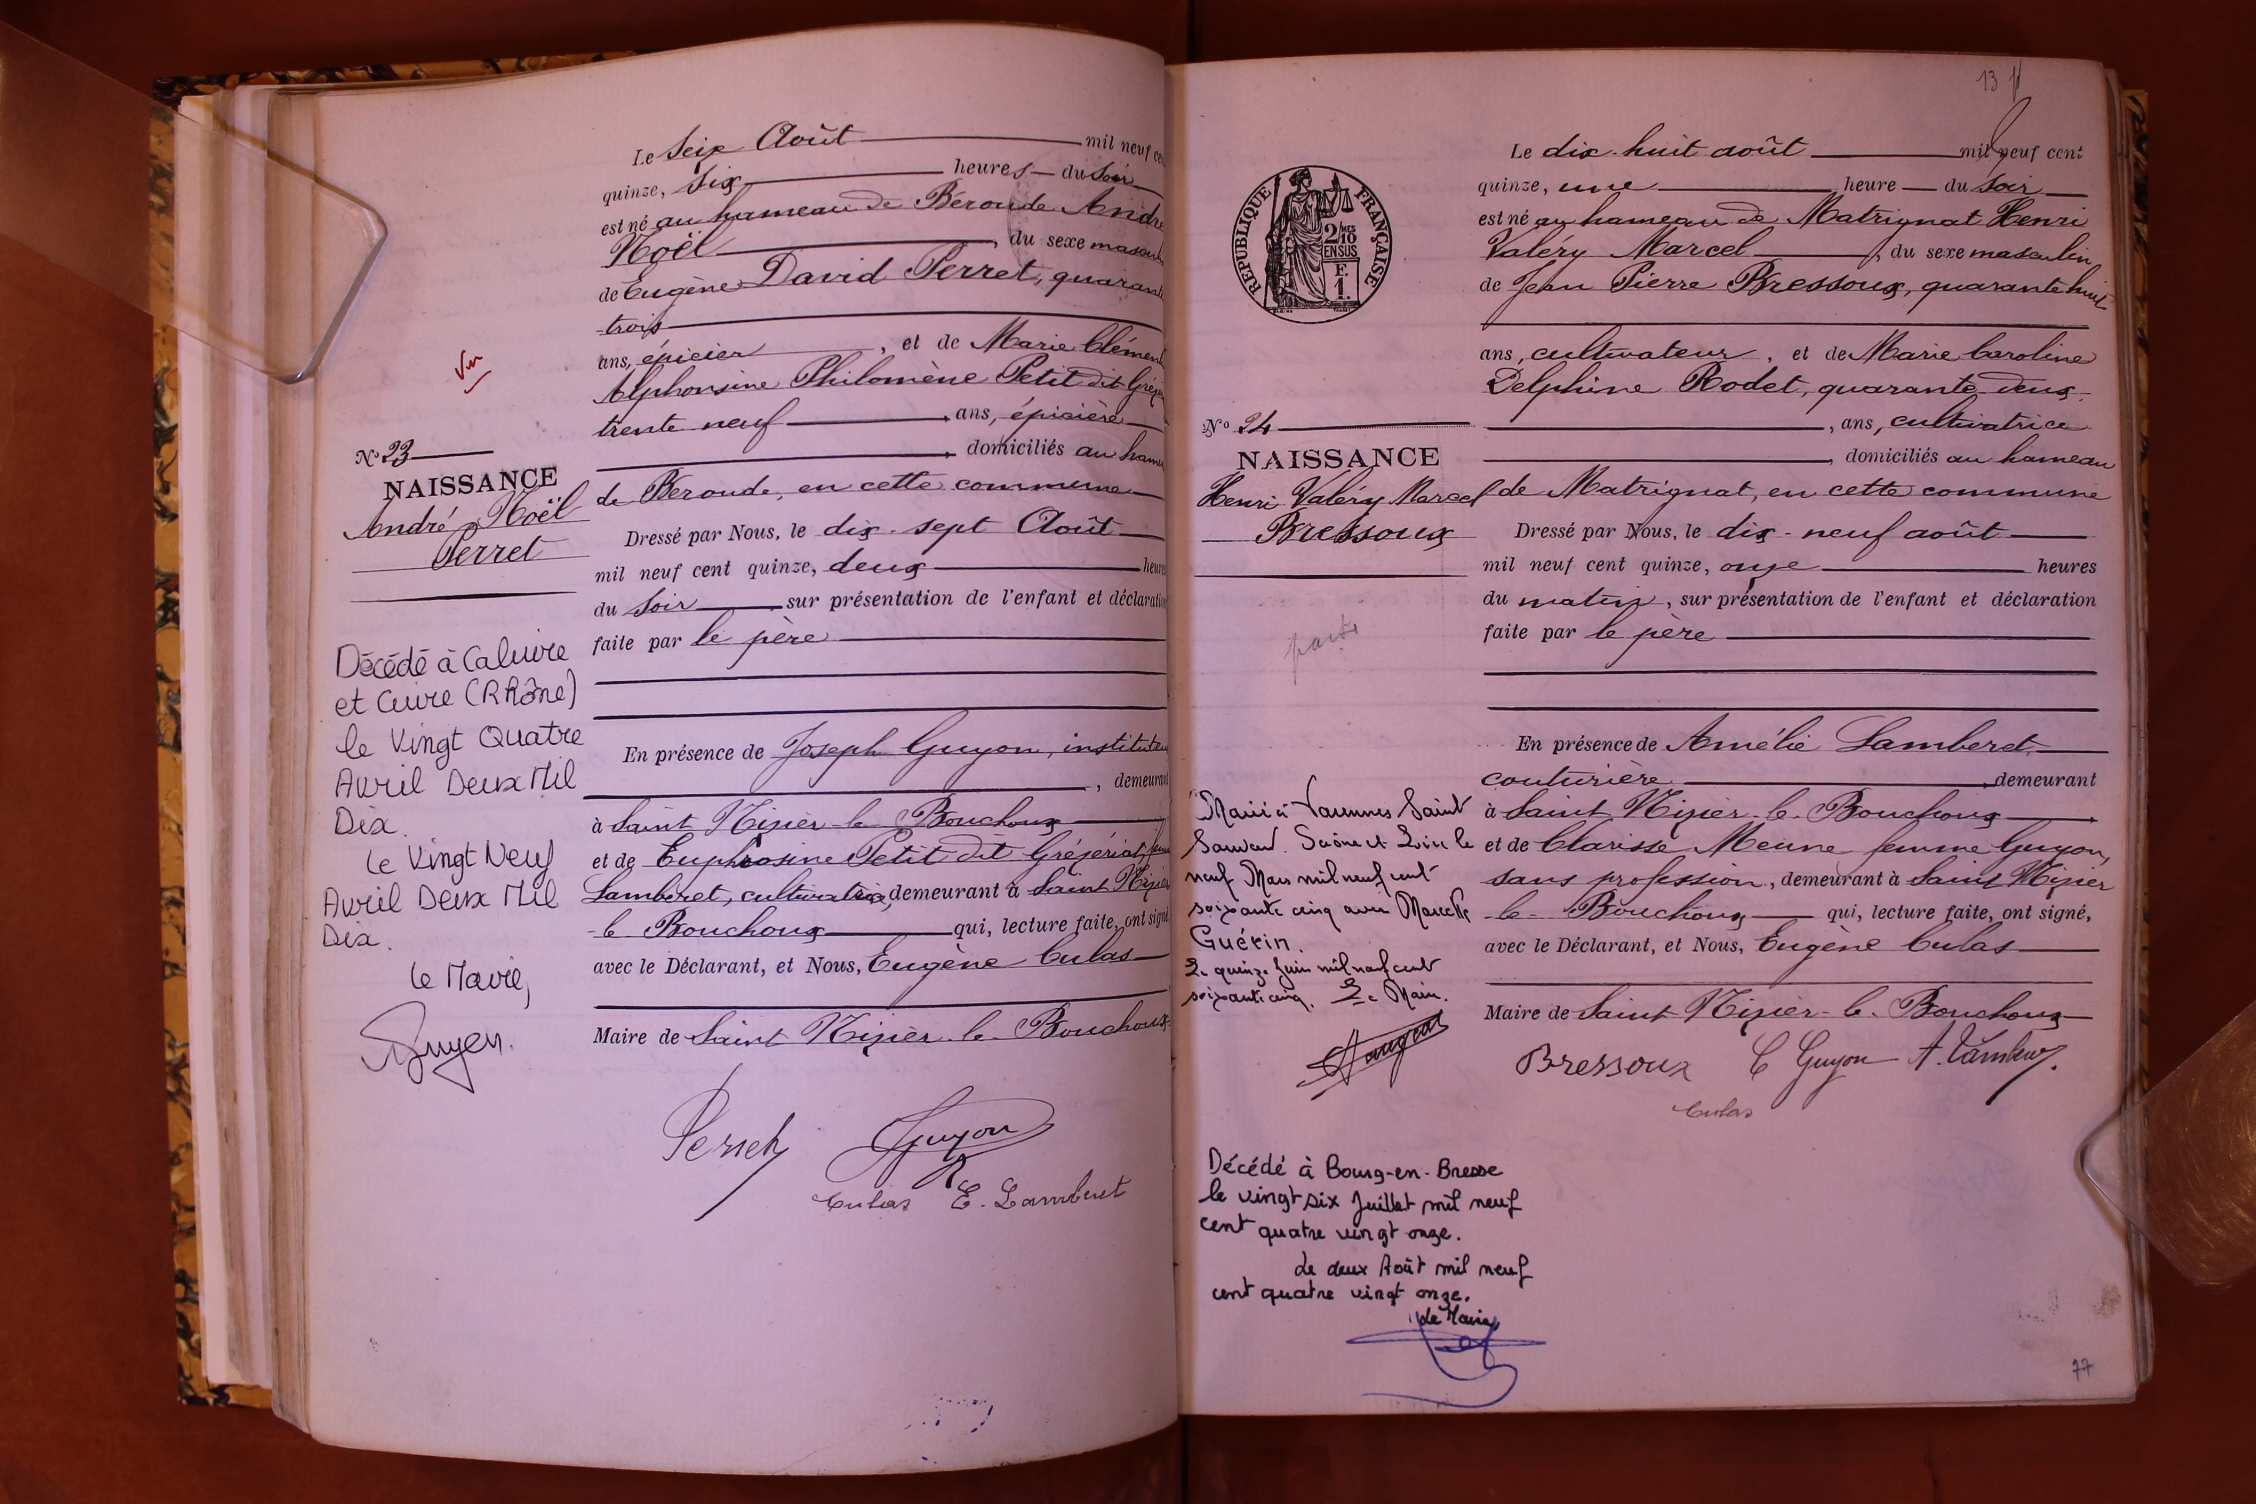 Le seize Août mil neuf cent
quinze, six heures du soir
est né au hameau de Béroude André
Noël, du sexe masculin
de Eugène David Perret, quarante
trois
ans, épicier, et de Marie Clémence
Alphonsine Philomène Petit dit Grégériat
trente neuf, ans, épicière
, domiciliés au hameau
de Béroude, en cette commune
Dressé par Nous, le dix-sept Août
mil neuf cent quinze, deux heures
du soir sur présentation de l'enfant et déclaration
faite par le père
En présence de Joseph Guyon, instituteur
, demeurant
à Saint Nizier-le Bouchoux
et de Euphrosine Petit dit Grégériat, femme
Lamberet, cultivatrice, demeurant à Saint Nizier
-le Bouchoux qui, lecture faite, ont signé
avec le Déclarant, et Nous, Eugène Culas
Maire de Saint Nizier-le-Bouchoux
Perret
Guyon
Culas E. Lamberet
Vu
N° 23
NAISSANCE
André Noël
Perret
Décédé à Caluire
et Cuire (Rhône)
le Vingt Quatre
Avril Deux Mil
Dix.
Le Vingt Neuf
Avril Deux Mil
Dix.
Le Maire,
13
Le dix-huit août mil neuf cent
quinze, une heure du soir
est né au hameau de Matrignat Henri
Valéry Marcel, du sexe masculin
de Jean Pierre Bressoux, quarante huit
ans, cultivateur, et de Marie Caroline
Delphine Rodet, quarante-deux
, ans, cultivatrice
, domiciliés au hameau
de Matrignat, en cette commune
Dressé par Nous, le dix-neuf août
mil neuf cent quinze, onze heures
du matin, sur présentation de l'enfant et déclaration
faite par le père
En présence de Amélie Lamberet,
couturière, demeurant
à Saint Nizier-le-Bouchoux
et de Clarisse Meune femme Guyon,
sans profession, demeurant à Saint Nizier
-le-Bouchoux qui, lecture faite, ont signé,
avec le Déclarant, et Nous, Eugène Culas
Maire de Saint Nizier-le-Bouchoux
Bressoux C Guyon A. Lamberet
Culas
REPUBLIQUE FRANÇAISE
2/10 MES
EN SUS
F.
1.
N° 24
NAISSANCE
Henri Valéry Marcel
Bressoux
Marié à Varennes Saint
Sauveur Saône et Loire le
neuf Mars mil neuf cent
soixante cinq avec Marcelle
Guérin.
Le quinze Juin mil neuf cent
soixante cinq. Le Maire.
Décédé à Bourg-en-Bresse
le vingt six Juillet mil neuf
cent quatre vingt onze.
Le deux Août mil neuf
cent quatre vingt onze.
Le Maire,
77